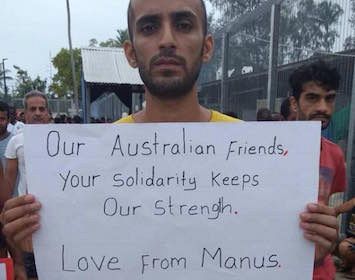 Our Australian Friends,
Your Solidarity Keeps
Our Strength.
Love From Manus.